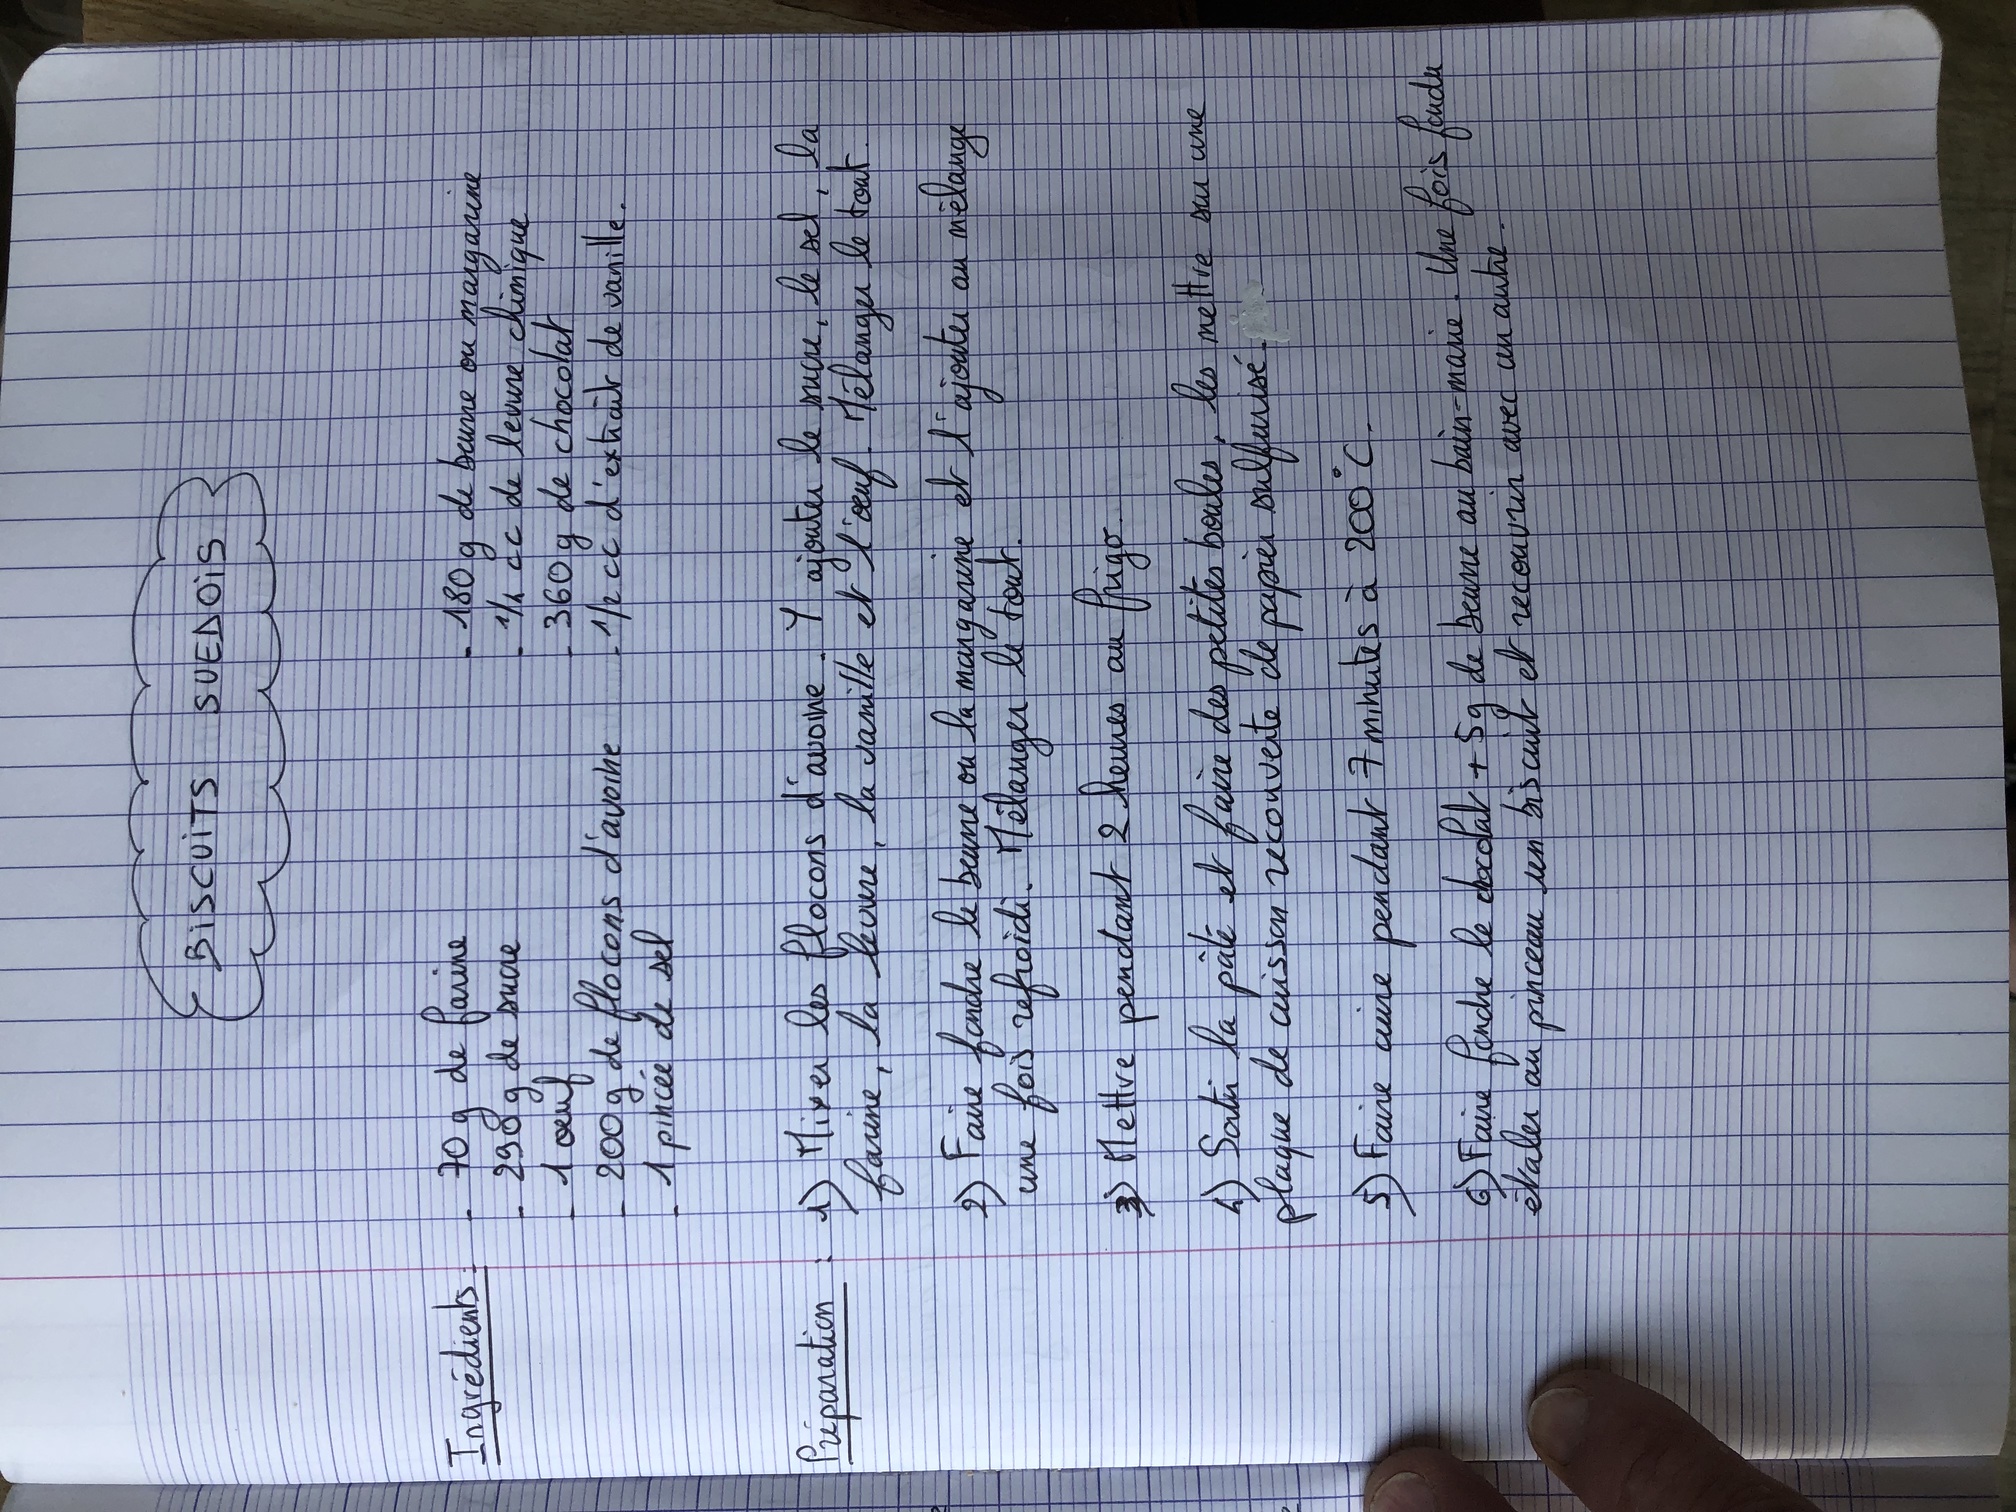 BISCUITS SUEDOIS
Ingrédients:
- 70 g de farine
- 290 g de sucre
- 1 oeuf
- 200 g de flocons d'avoine
- 1 pincée de sel
- 180 g de beurre ou margarine
- 1/2 cc de levure chimique
- 360 g de chocolat
- 1/2 cc d'extrait de vanille.
Préparation : 1) Mixer les flocons d'avoine. Y ajouter le sucre, le sel, la
farine, la levure, la vanille et l'oeuf. Mélanger le tout.
2) Faire fondre le beurre ou la margarine et l'ajouter au mélange
une fois refroidi. Mélanger le tout.
3) Mettre pendant 2 heures au frigo.
4) Sortir la pâte et faire des petites boules, les mettre sur une
plaque de cuisson recouverte de papier sulfurisé.
5) Faire cuire pendant 7 minutes à 200°C.
6) Faire fondre le chocolat + 5g de beurre au bain-marie. Une fois fondu
étaler au pinceau un biscuit et recouvrir avec un autre.